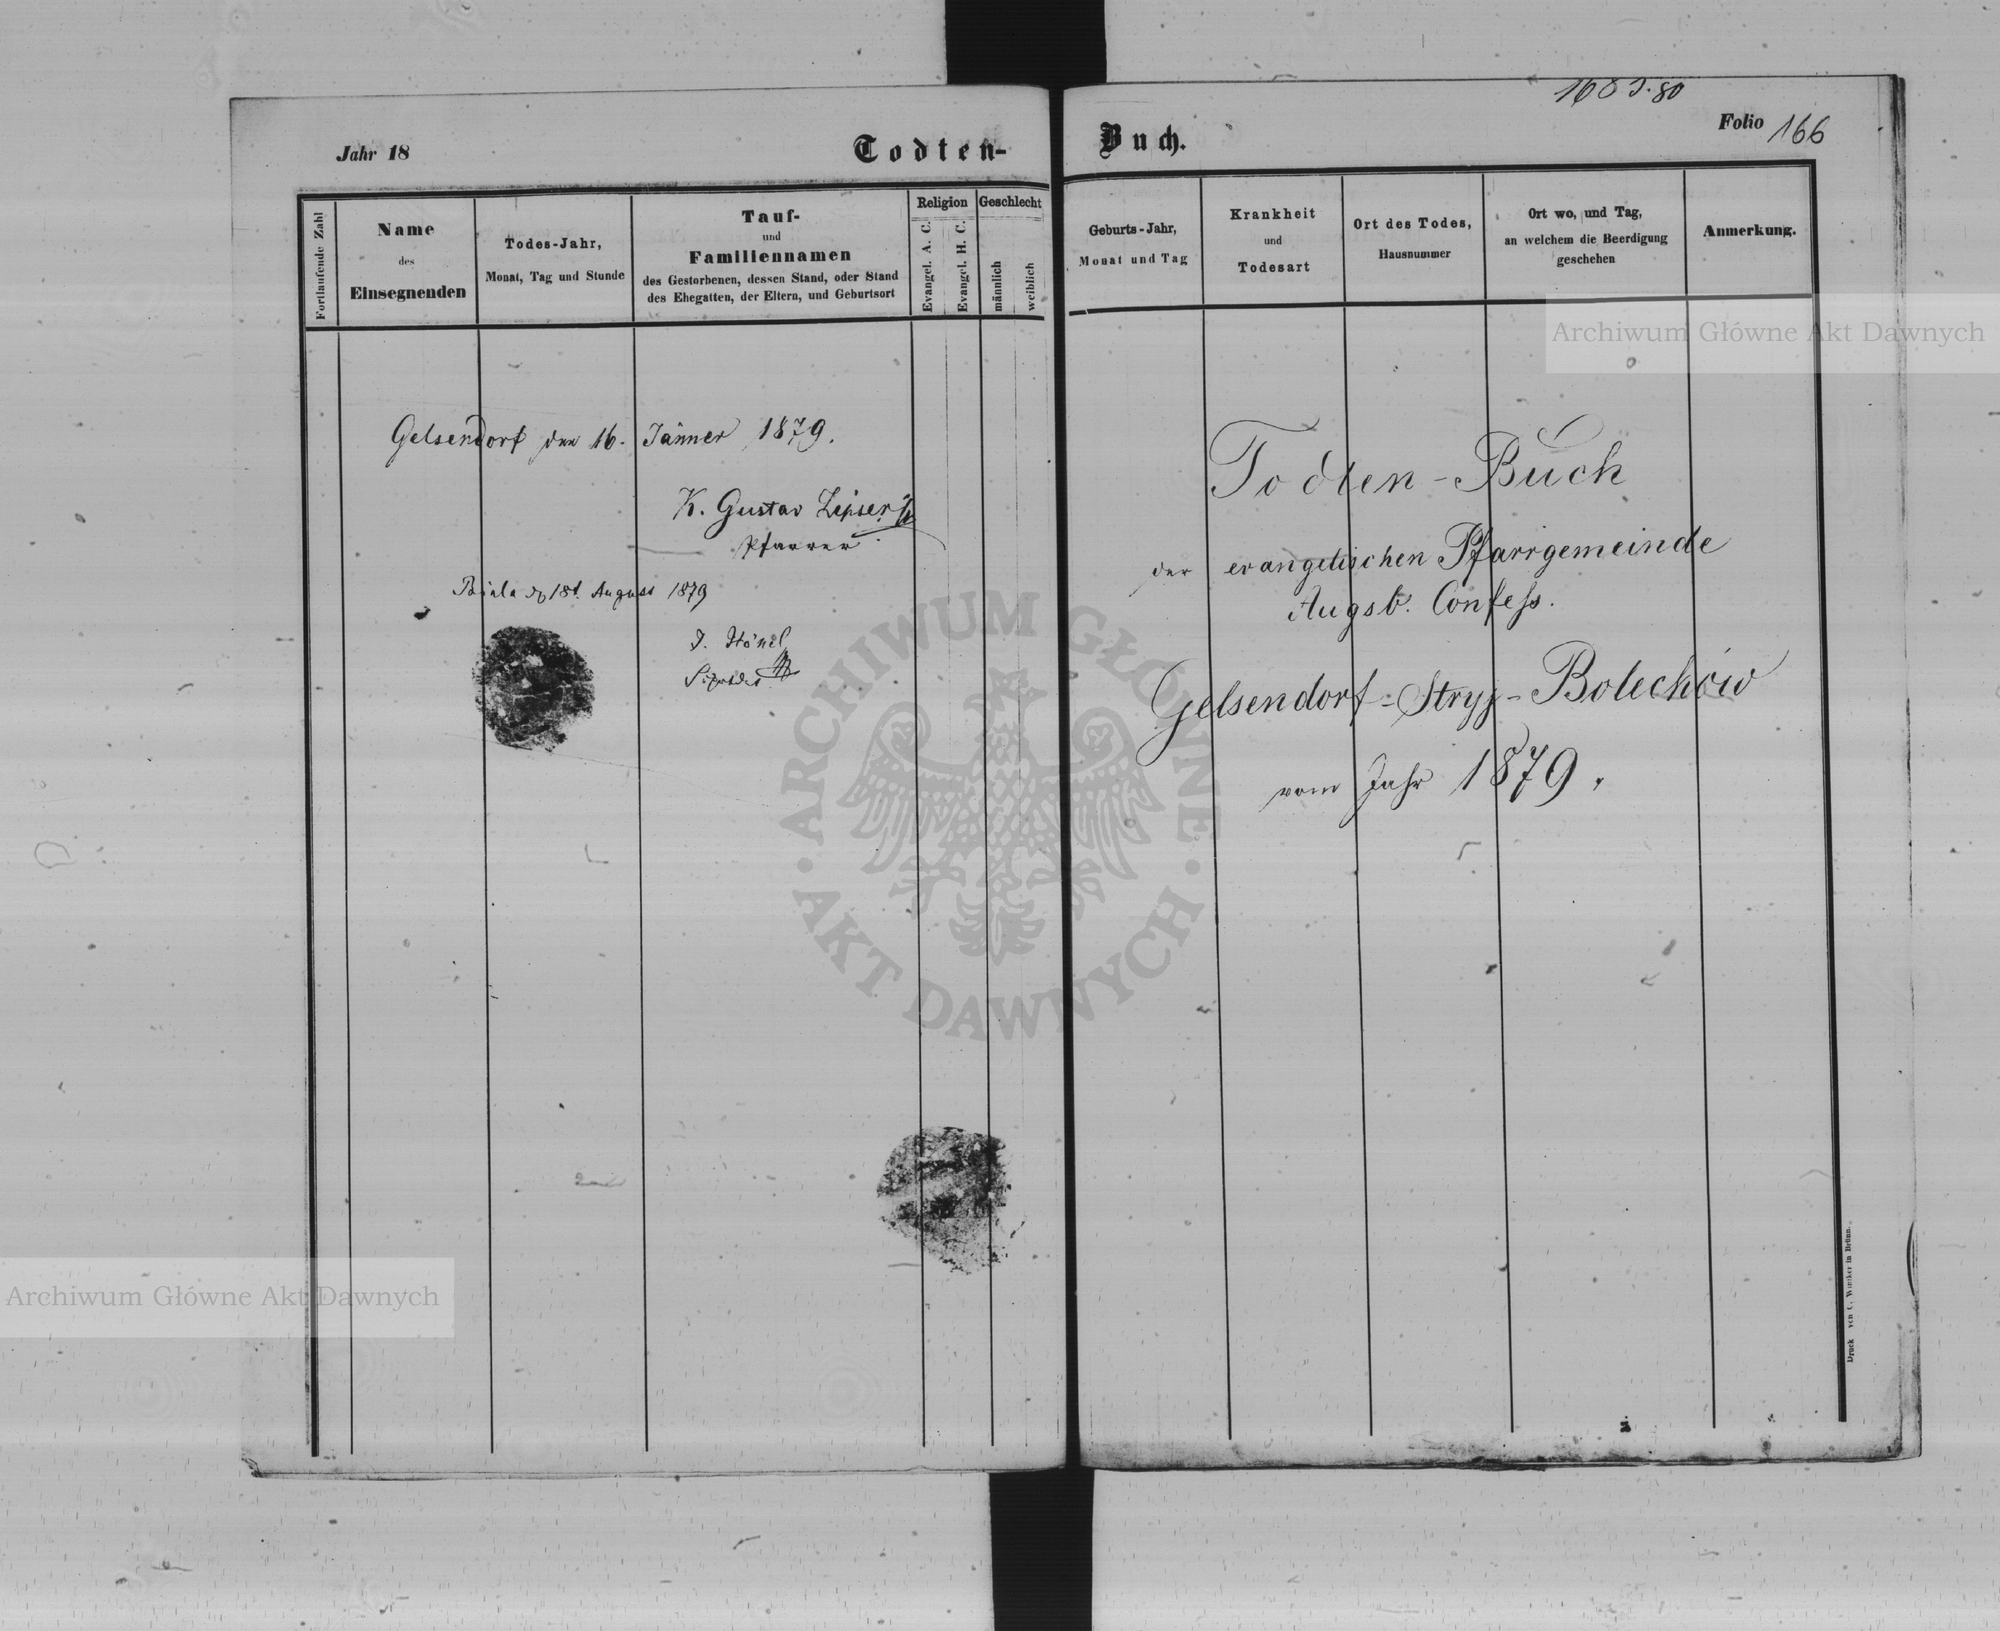 Jahr 18
Todten-
Fortlaufende Zahl
Name
des
Einsegnenden
Todes-Jahr,
Monat, Tag und Stunde
Tauf-
und
Familiennamen
des Gestorbenen, dessen Stand, oder Stand
des Ehegatten, der Eltern, und Geburtsort
Religion
Evangel. A. C.
Evangel. H. C.
Geschlecht
männlich
weiblich
Gelsendorf den 16. Jänner 1879.
K. Gustav
Pfarrer
Biala 18t. August 1879
J. Hönel
Buch.
Folio 166
Geburts-Jahr,
Monat und Tag
Krankheit
und
Todesart
Ort des Todes,
Hausnummer
Ort wo, und Tag,
an welchem die Beerdigung
geschehen
Anmerkung.
Todten-Buch
der evangelischen Pfarrgemeinde
Augsb. Confess.
Gelsendorf-Stryj-Bolechów
vom Jahr 1879.
Druck von C. Winiker in Brünn.
Archiwum Główne Akt Dawnych
Archiwum Główne Akt Dawnych
ARCHIWUM GŁÓWNE
AKT DAWNYCH